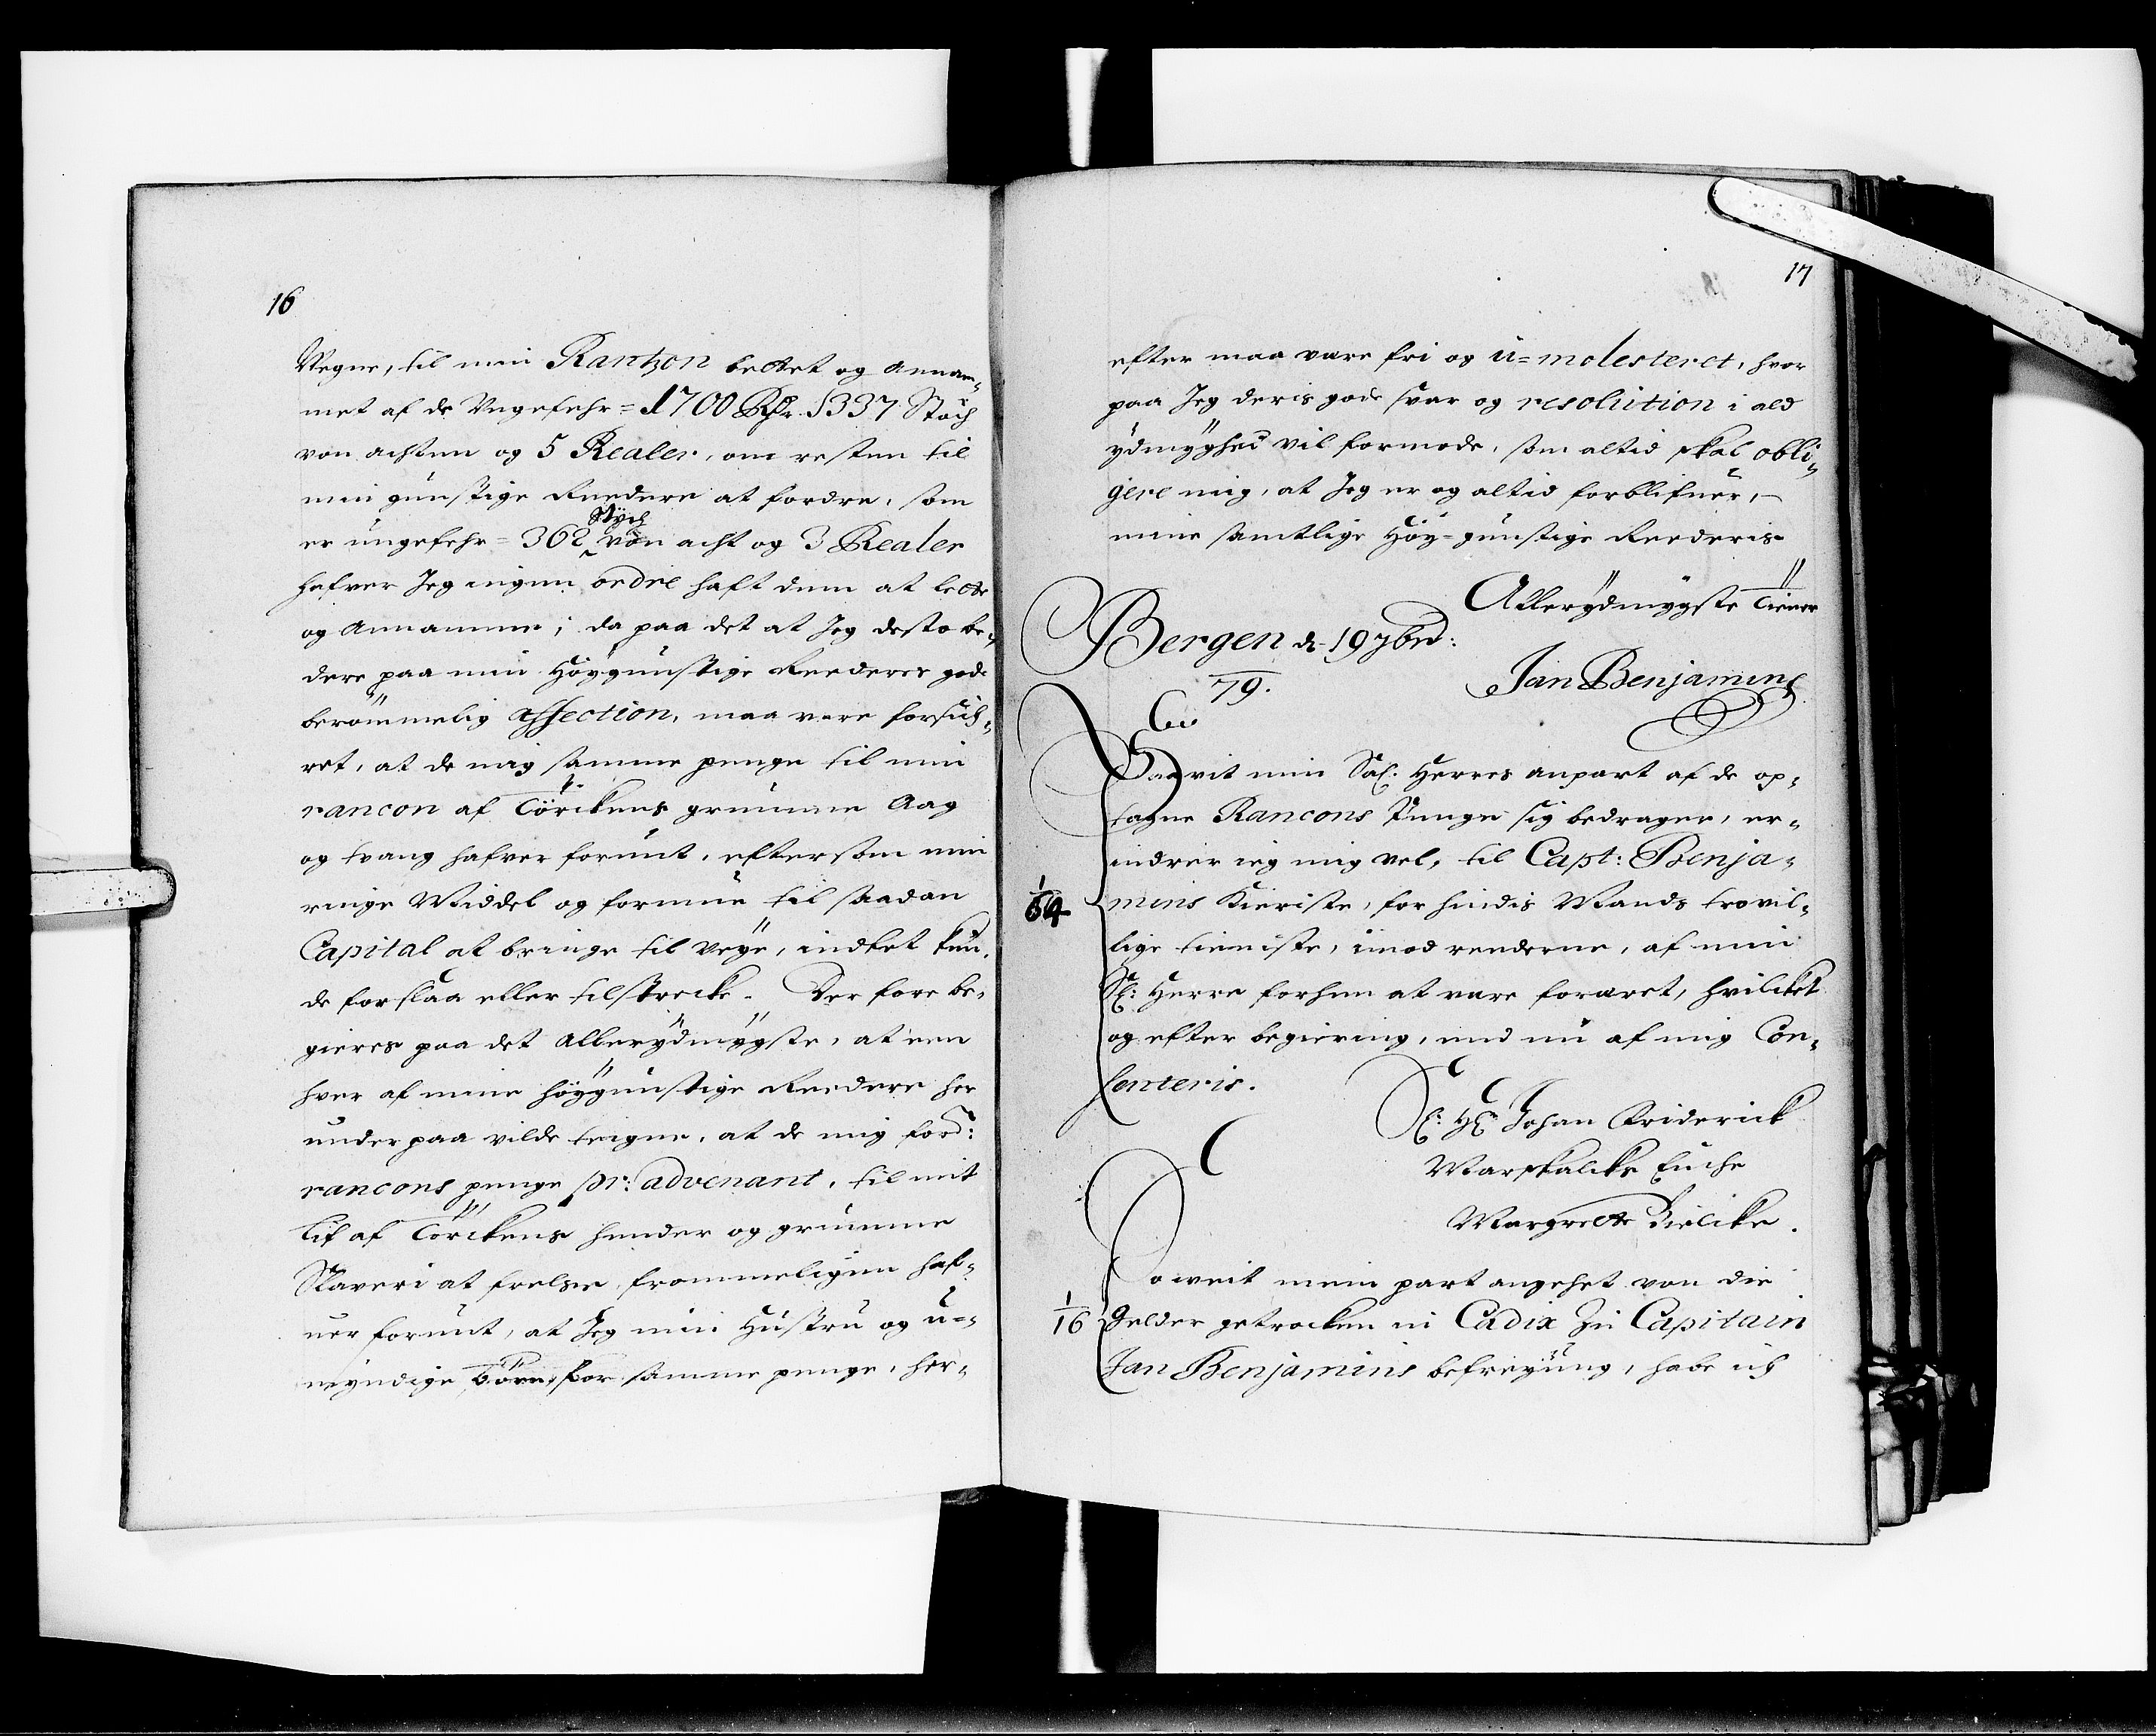 16
Vegne, til min Rantzon lettet og annam-
met af de Ungefehr = 1700 Rdr. 1337 Stöch
von achten og 5 Realer, om resten til
min gunstige Reedere at fordre, som
er ungefehr = 362 Stÿch von acht og 3 Realer
hafver Jeg ingen ordre haft dem at lette
og Annamme; da paa det at Jeg desto be-
dere paa min Höygunstige Reederes gode
berömmelig affection, maa vere forsick-
ret, at de mig samme penge til min
rancon af Törckens grumme Aag
og tvang hafver forunt, eftersom min
ringe Middel og formue til saadan
Capital at bringe til veÿe, indtet kun-
de forslaa eller tilstrecke. Der fore be-
gieres paa det allerÿdmÿgste, at een
hver af mine höÿgunstige Reedere her
under paa vilde teigne, at de mig ford:
rancons penge pr: advenant, til mit
Lif af Törckens hender og grumme
Slaveri at frelse, frommeligen haf-
uer forunt, at Jeg min Hustru og u=
mÿndige börn for samme penge, her-
17
efter maa vare fri og u=molesteret, hvor
paa Jeg deris gode svar og resolution i ald
ÿdmÿghed vil formode, som altid skal obli-
gere mig, at Jeg er og altid forblifuer,
mine samtlige Höy=gunstige Reederis
Allerÿdmÿgste Tiener
Bergen d. 19 7bris:
79.
Jan Benjamins
Saavit min Sal: Herres anpart af de op-
tagne Rancons Penge sig bedrager, er-
indrer ieg mig vel, til Capt: Benja-
1/64 mins Kieriste, for hindis Mands trovil-
lige tieniste, imod reederne, af min
Sl: Herre forhen at vare foræret, hvilcket
og efter begiering, end nu af mig Con-
senteris.
Sl: Hr Johan Friderick
Marskalcks Enche
Margrette Bielcke.
Soweit mein part angehet von die
1/16 Gelder getrocken in Cadix zu Capitain
Jan Benjamins befreÿung, habe ich